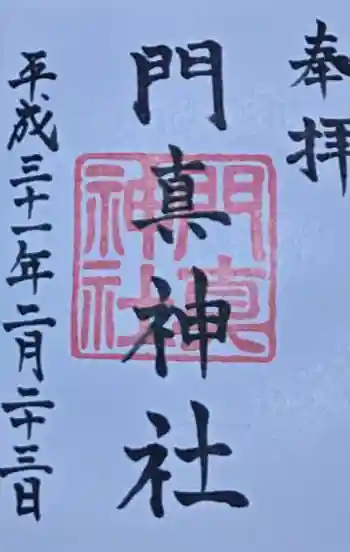 奉拝
門真神社
門真神社
平成三十一年二月二十三日